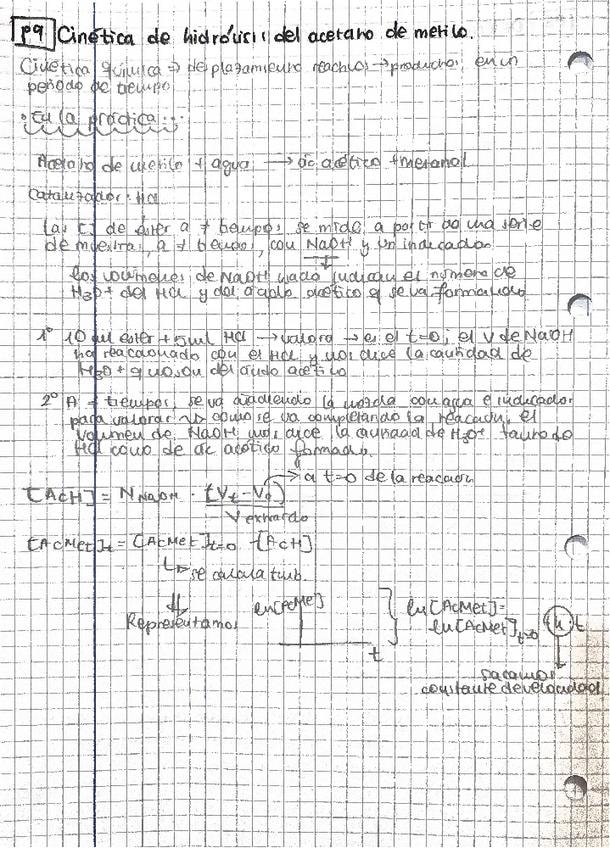 P9 Cinética de hidrólisis del acetato de metilo.
Cinética química ⇒ desplazamiento reactivos → productos en un
periodo de tiempo
• En la práctica...
Acetato de metilo + agua → ác acético + metanol
Catalizador: HCl
Las [] de éster a ≠ tiempos se mide a partir de una serie
de muestras, a ≠ tiempos, con NaOH y un indicador
Los volúmenes de NaOH usado indican el número de
H3O+ del HCl y del ácido acético q se va formando
1º 10 ml ester + 5 ml HCl → valora → es el t=0; el V de NaOH
ha reaccionado con el HCl y nos dice la cantidad de
H3O+ q no son del ácido acético
2º A ≠ tiempos, se va añadiendo la mezcla con agua e indicador
para valorar ⇝ como se va completando la reacción, el
volumen de NaOH nos dice la cantidad de H3O+ tanto de
HCl como de ác acético formado.
→ a t=0 de la reacción
[AcH] = N NaOH · (Vt - V0)
V extraído
[AcMet]t = [AcMet]t=0 - [AcH]
↳ se calcula tmb.
⇓
Representamos
ln[AcMe]
t
ln[AcMet] =
ln[AcMet]t=0 (k)·t
sacamos
constante de velocidad